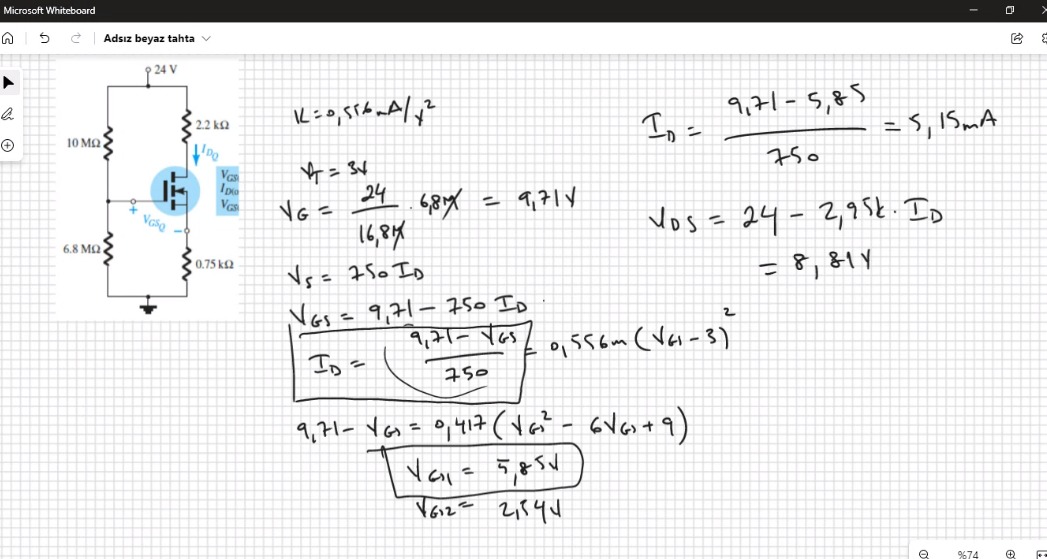 Microsoft Whiteboard
Adsız beyaz tahta
24 V
2.2 kΩ
10 MΩ
I_DQ
V_GS
I_D(o
V_GS
V_GSQ
+
−
6.8 MΩ
0.75 kΩ
K = 0,556 mA/V²
V_T = 3V
V_G = 24 / 16,8M . 6,8M = 9,71V
V_S = 750 I_D
V_GS = 9,71 − 750 I_D
I_D = (9,71 − V_GS) / 750 = 0,556m (V_GS − 3)²
9,71 − V_GS = 0,417 (V_GS² − 6V_GS + 9)
V_GS1 = 5,85V
V_GS2 = 2,54V
I_D = (9,71 − 5,85) / 750 = 5,15mA
V_DS = 24 − 2,95k . I_D
= 8,81V
%74